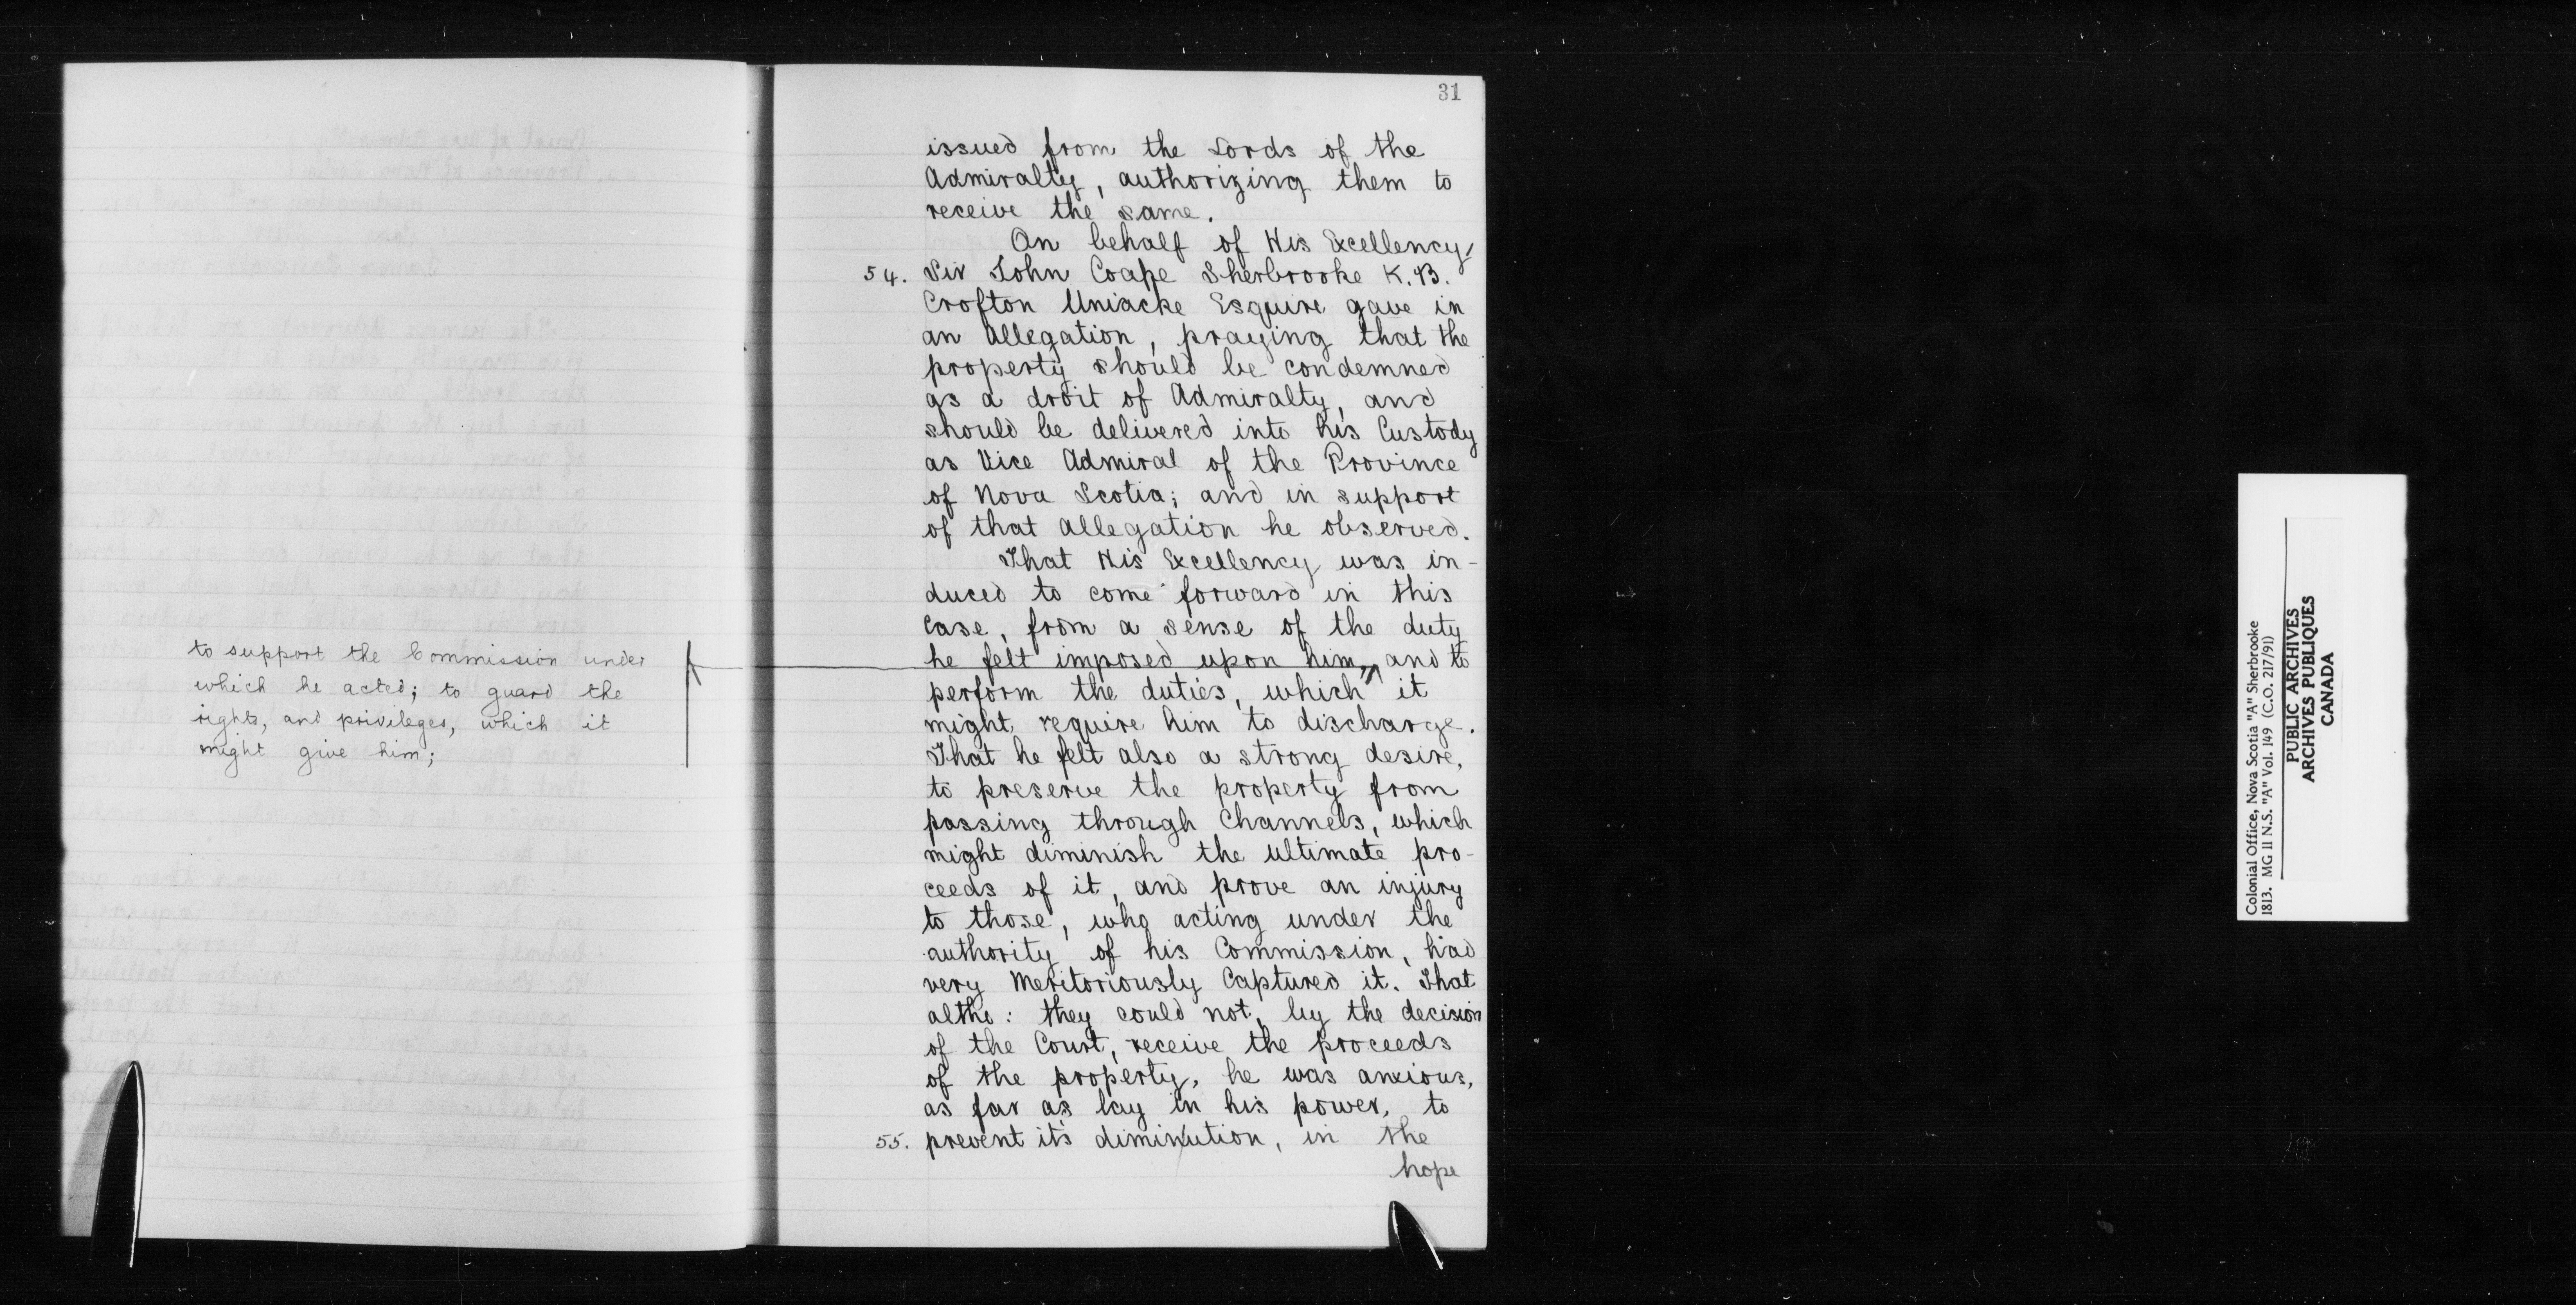 to support the Commission under
which he acted; to guard the
rights, and privileges, which it
might give him;
31
issued from the Lords of the
Admiralty, authorizing them to
receive the same.
On behalf of His Excellency
54. Sir John Coape Sherbrooke K.B.
Crofton Uniacke Esquire gave in
an Allegation, praying that the
property should be condemned
as a droit of Admiralty, and
should be delivered into his Custody
as Vice Admiral of the Province
of Nova Scotia; and in support
of that Allegation he observed.
That His Excellency was in-
duced to come forward in this
Case, from a sense of the duty
he felt imposed upon him, and to
perform the duties, which it
might require him to discharge.
That he felt also a strong desire,
to preserve the property from
passing through Channels, which
might diminish the ultimate pro-
ceeds of it, and prove an injury
to those, who acting under the
authority of his Commission, had
very Meritoriously Captured it. That
altho: they could not, by the decision
of the Court, receive the proceeds
of the property, he was anxious,
as far as lay in his power, to
55. prevent it's diminution, in the
hope
Colonial Office, Nova Scotia "A" Sherbrooke
1813. MG 11 N.S. "A" Vol. 149 (C.O. 217/91)
PUBLIC ARCHIVES
ARCHIVES PUBLIQUES
CANADA